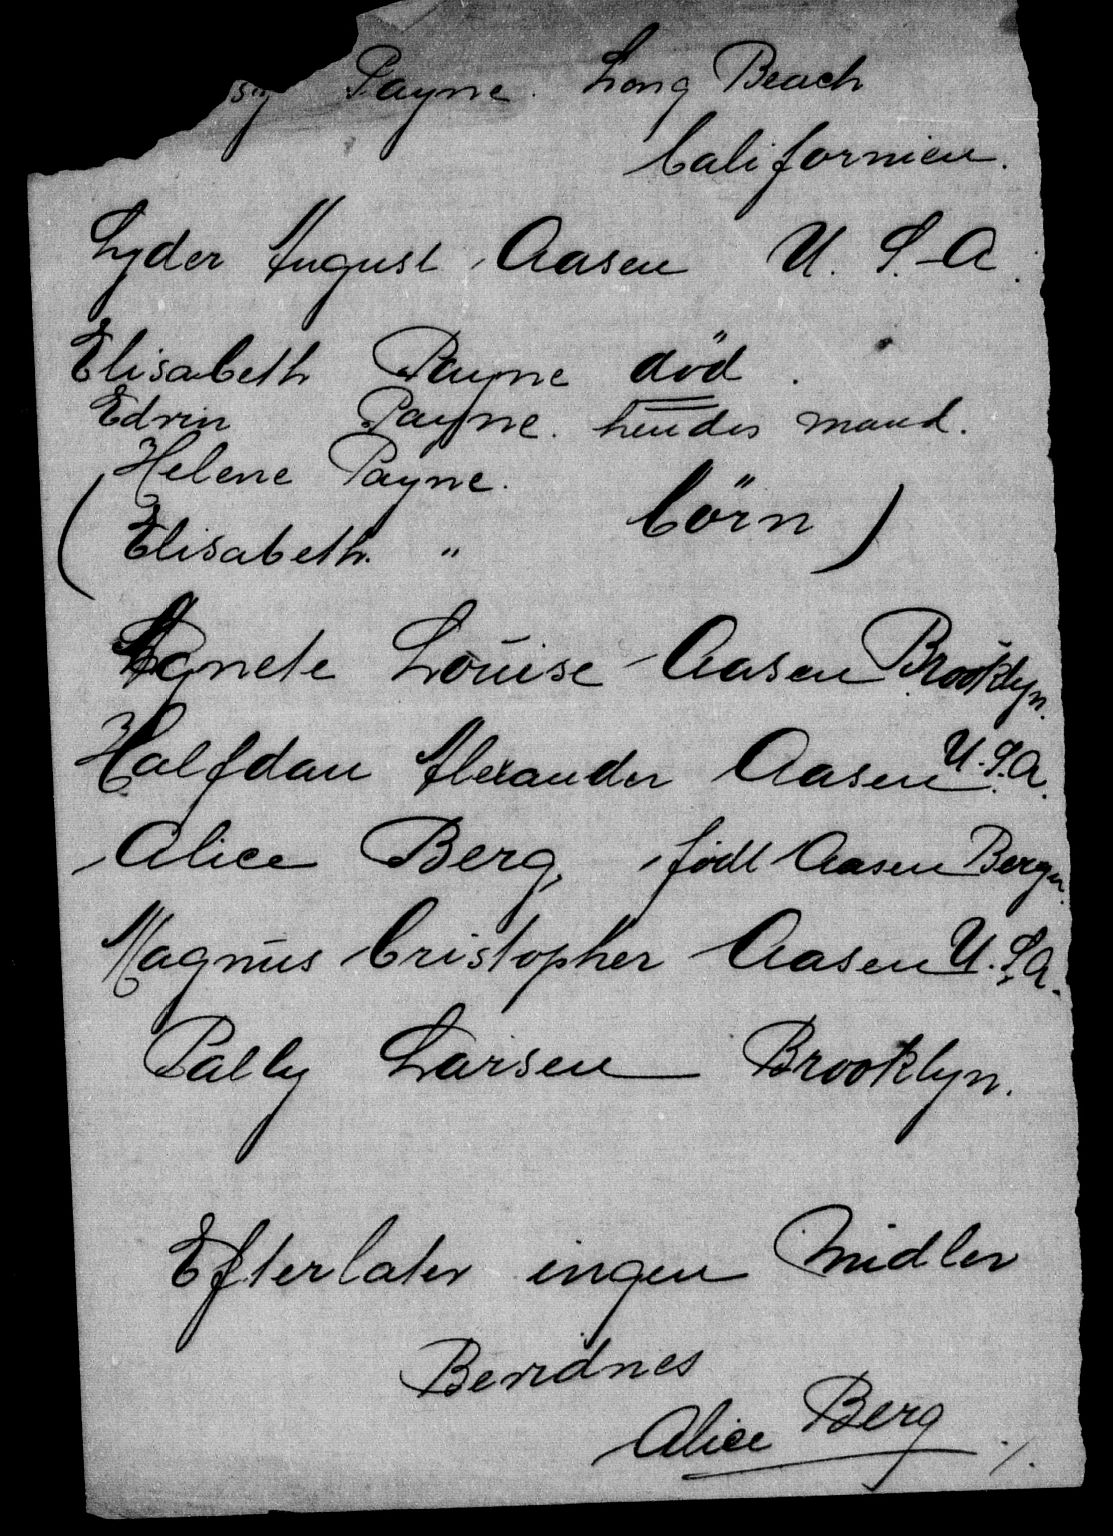 Payne. Long Beach
Californien.
Lyder August Aasen U. S. A.
Elisabeth Payne död.
Edvin Payne. hendes mand.
(Helene Payne.
Elisabeth. " börn)
Agnete Louise Aasen Brooklyn.
Halfdan Alexander Aasen U.S.A.
Alice Berg, född Aasen Bergen.
Magnus Cristopher Aasen U.S.A.
Pally Larsen Brooklyn.
Efterlater ingen midler
Bevidnes
Alice Berg